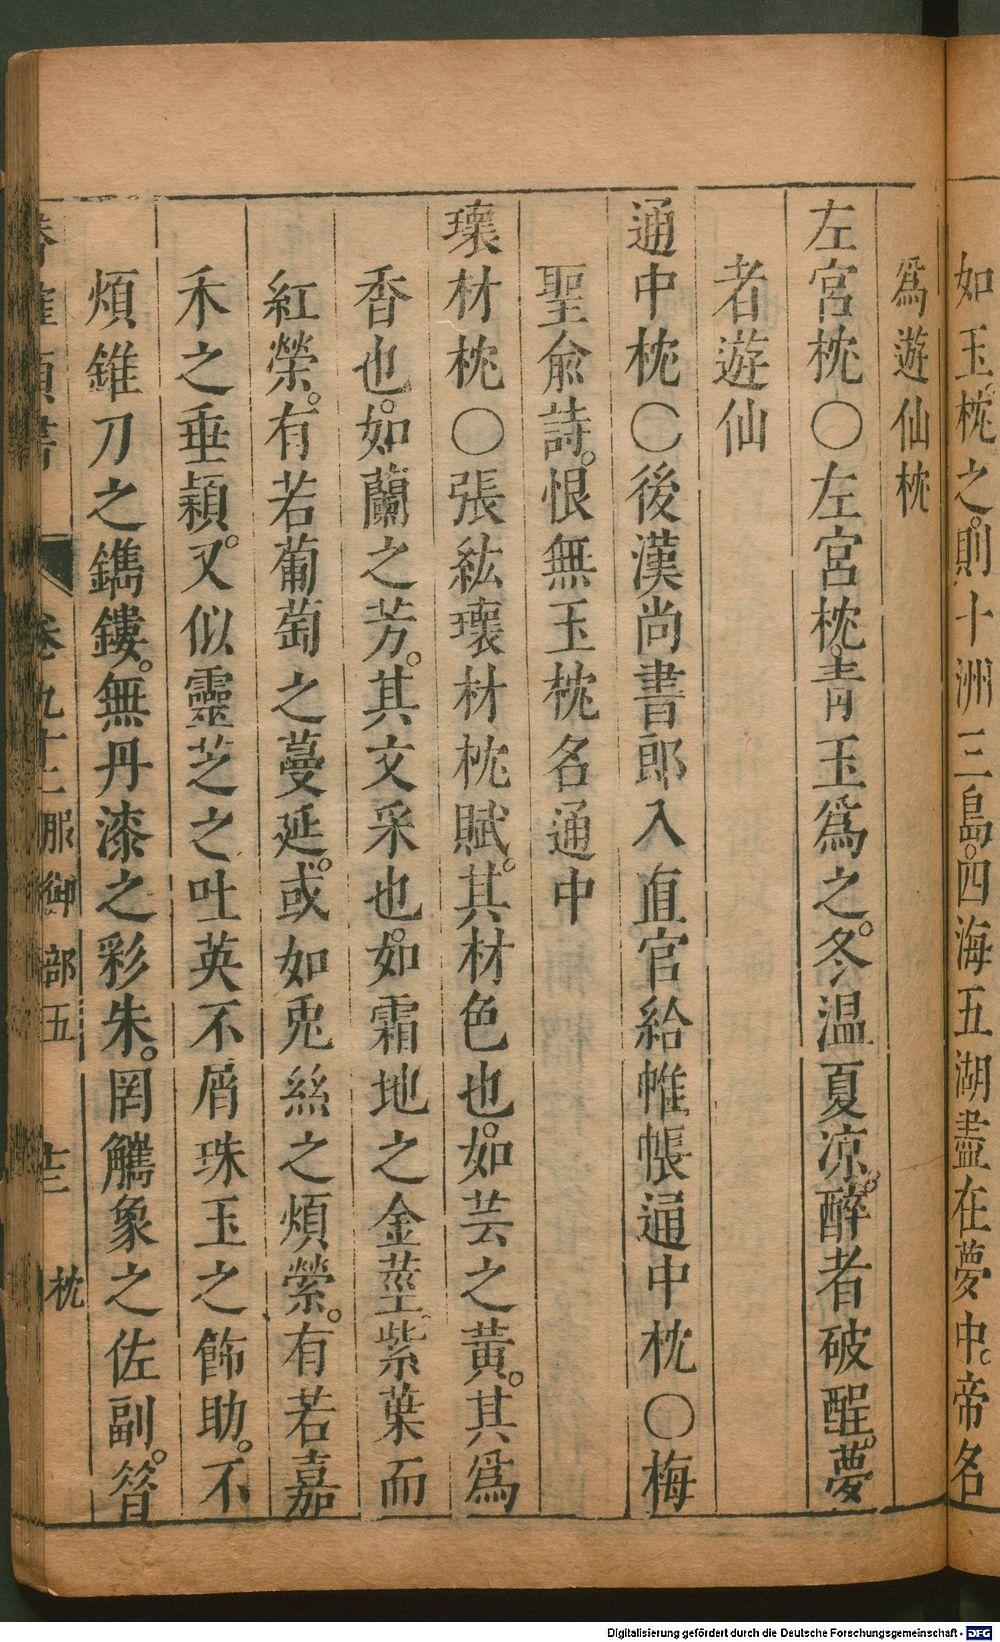 如玉枕之。則十洲三島。四海五湖盡在夢中。帝名
爲遊仙枕
左宮枕〇左宮枕。青玉爲之。冬温夏凉。醉者破酲。夢
者遊仙
通中枕〇後漢尚書郎入直官給帷帳通中枕〇梅
聖俞詩。恨無玉枕名通中
瓌材枕〇張紘瓌材枕賦。其材色也。如芸之黃。其爲
香也。如蘭之芳。其文采也。如霜地之金莖。紫葉而
紅榮。有若葡萄之蔓延。或如兎絲之煩縈。有若嘉
禾之垂穎。又似靈芝之吐英不屑珠玉之飾助。不
煩錐刀之鐫鏤。無丹漆之彩朱。罔觿象之佐副。
卷九十二服御部五 枕
Digitalisierung gefördert durch die Deutsche Forschungsgemeinschaft - DFG